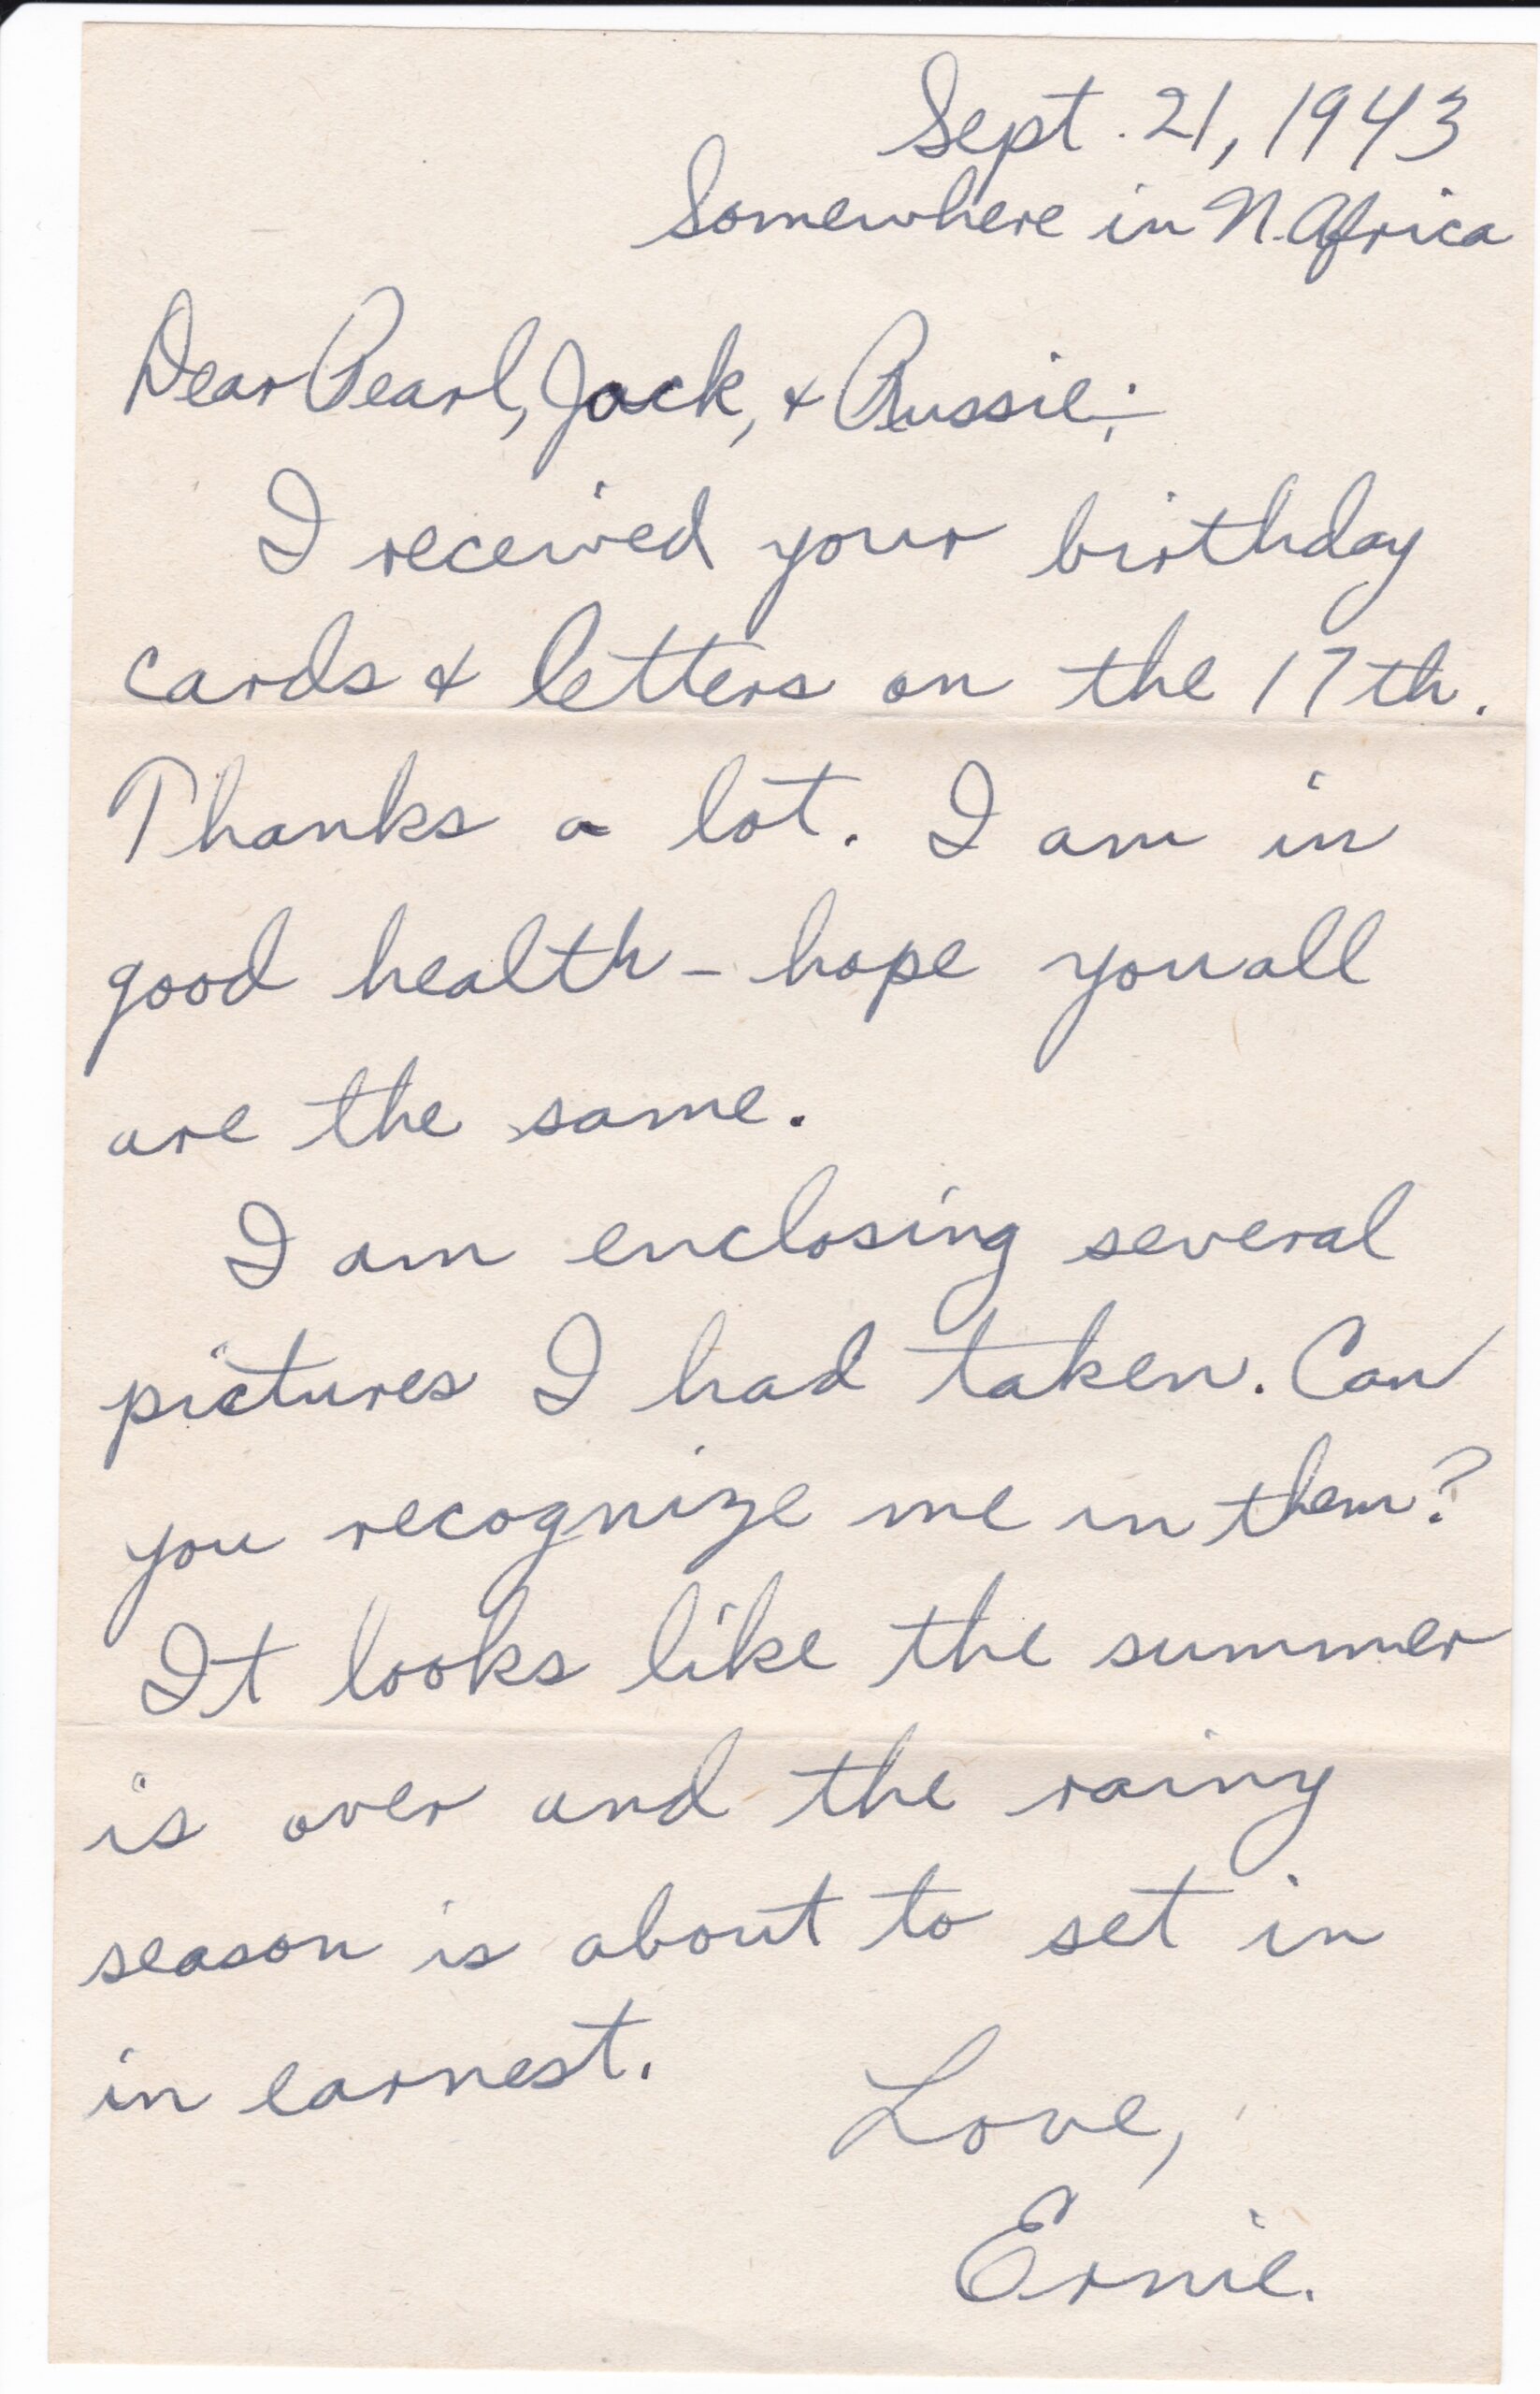 Sept. 21, 1943
Somewhere in N. Africa
Dear Pearl, Jack, & Russie;
I received your birthday
cards & letters on the 17th.
Thanks a lot. I am in
good health - hope you all
are the same.
I am enclosing several
pictures I had taken. Can
you recognize me in them?
It looks like the summer
is over and the rainy
season is about to set in
in earnest.
Love,
Ernie.